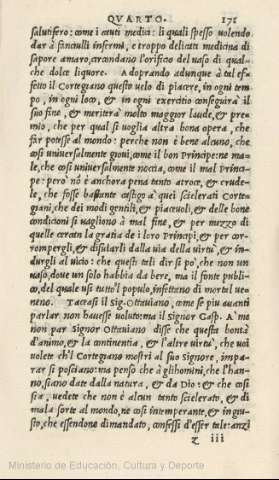 QVARTO. 171
salutifero: come i cauti medici: li quali spesso uolendo
dar à fanciulli infermi, e troppo delicati medicina di
sapore amaro, circondano l'orificio del uaso di qual-
che dolce liquore. Adoprando adunque à tal ef-
fetto il Cortegiano questo uelo di piacere, in ogni tem
po, in ogni loco, & in ogni exercitio conseguirà il
suo fine, & meriterà molto maggior laude, & pre-
mio, che per qual si voglia altra bona opera, che
far potesse al mondo: perche non è bene alcuno, che
cosi universalmente gioui, come il bon Principe: ne ma-
le, che cosi uniuersalmente noccia, come il mal Princi-
pe: pero nõ è anchora pena tanto atroce, & crude-
le, che fosse bastante castigo à quei scielerati Corte
giani, che dei modi gentili, & piaceuoli, & delle bone
condicioni si uagliono à mal fine, & per mezzo di
quelle cercan la gratia de i loro Principi, & per cor-
rompergli, & disuiarli dalla uia della uirtù, & in-
durgli al uicio: che questi tali dir si po', che non un
uaso, doue un solo habbia da bere, ma il fonte publi-
co, del quale usi tutto'l populo, infettano di mortal ue-
neno. Taceasi il Sig. Ottauiano, come se piu auanti
parlar non hauesse uoluto: ma il Signor Gasp. A' me
non par Signor Ottauiano disse che questa bontà
d'animo, & la continentia, & l'altre uirtù, che uoi
uolete ch'l Cortegiano mostri al suo Signore, impa-
rar si posciano: ma penso che à gli homini, che l'han-
no, siano date dalla natura, & da Dio: & che cosi
sia, uedete che non è alcun tanto scielerato, & di
mala sorte al mondo, ne cosi intemperante, & ingiu-
sto, che essendone dimandato, confessi d'esser tale: anzi
z iii
Ministerio de Educación, Cultura y Deporte